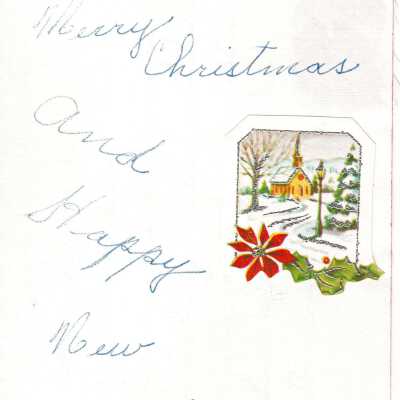 Merry
Christmas
And
Happy
New